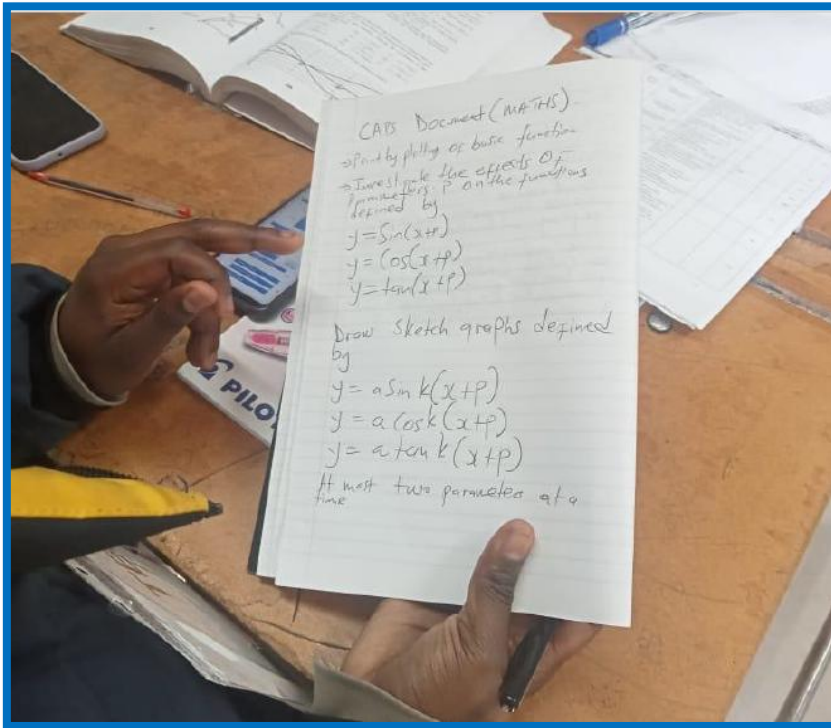 CAPS Document (MATHS)
→ Point by plotting of basic function
→ Investigate the effects of
parameters P on the functions
defined by
y = Sin(x+p)
y = Cos(x+p)
y = tan(x+p)
Draw sketch graphs defined
by
y = a Sin k(x+p)
y = a Cos k(x+p)
y = a tan k(x+p)
At most two parameter at a
time
PILOT